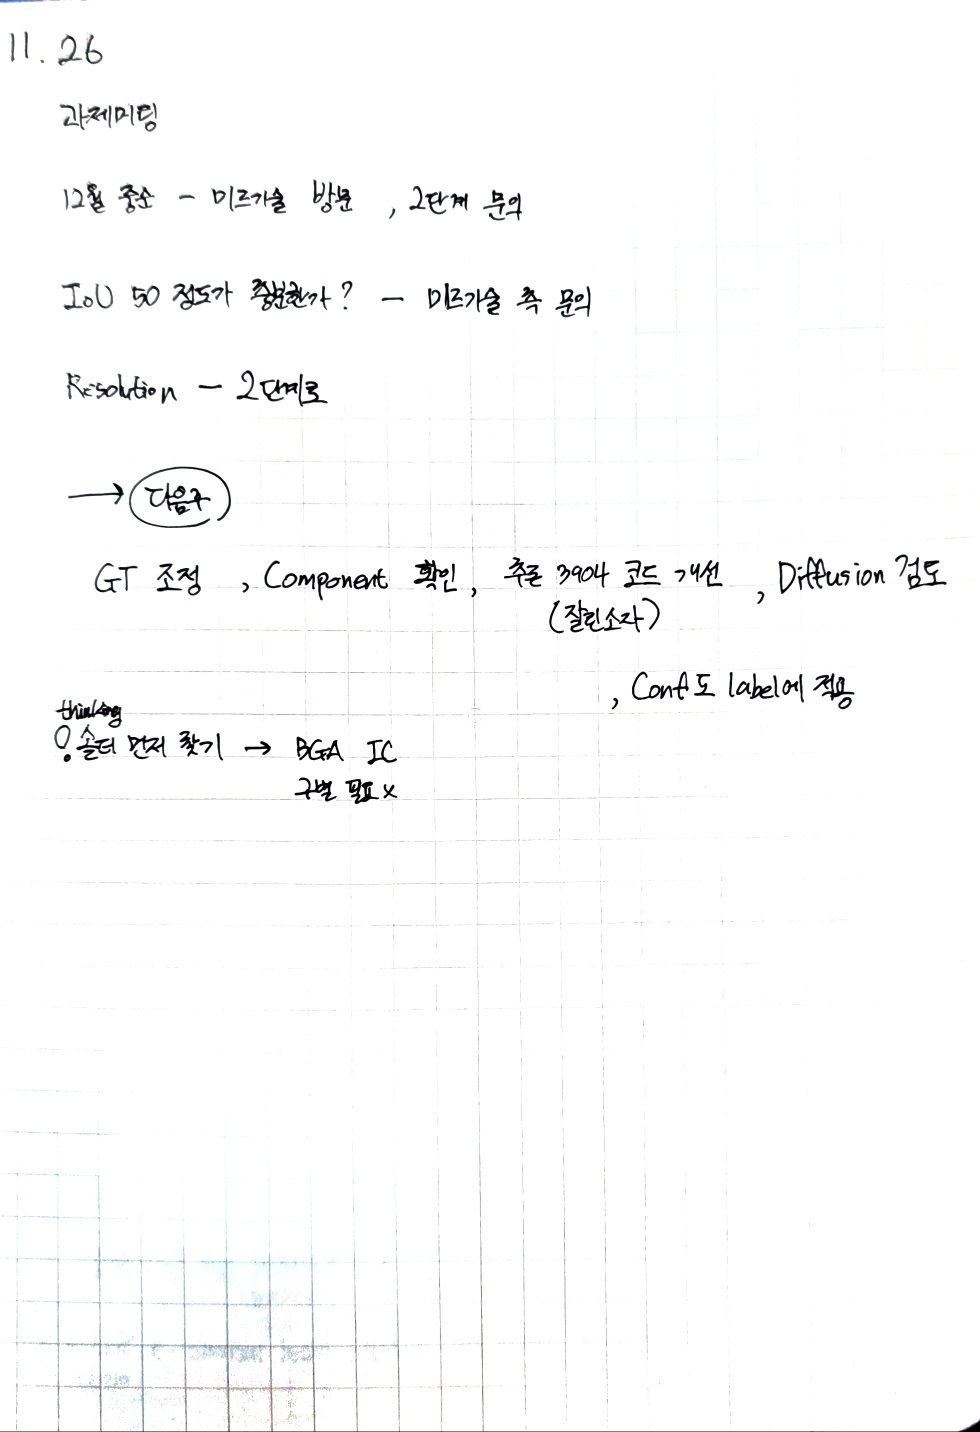 11.26
과제미팅
12월 중순 - 미르기술 방문 , 2단계 문의
IoU 50 정도가 충분한가? - 미르기술 측 문의
Resolution - 2단계로
→ 다음주
GT 조정 , Component 확인, 추론 3904 코드 개선 , Diffusion 검토
(잘린소자)
, Conf도 label에 적용
thinking
솔더 먼저 찾기 → BGA IC
구별 필요 x